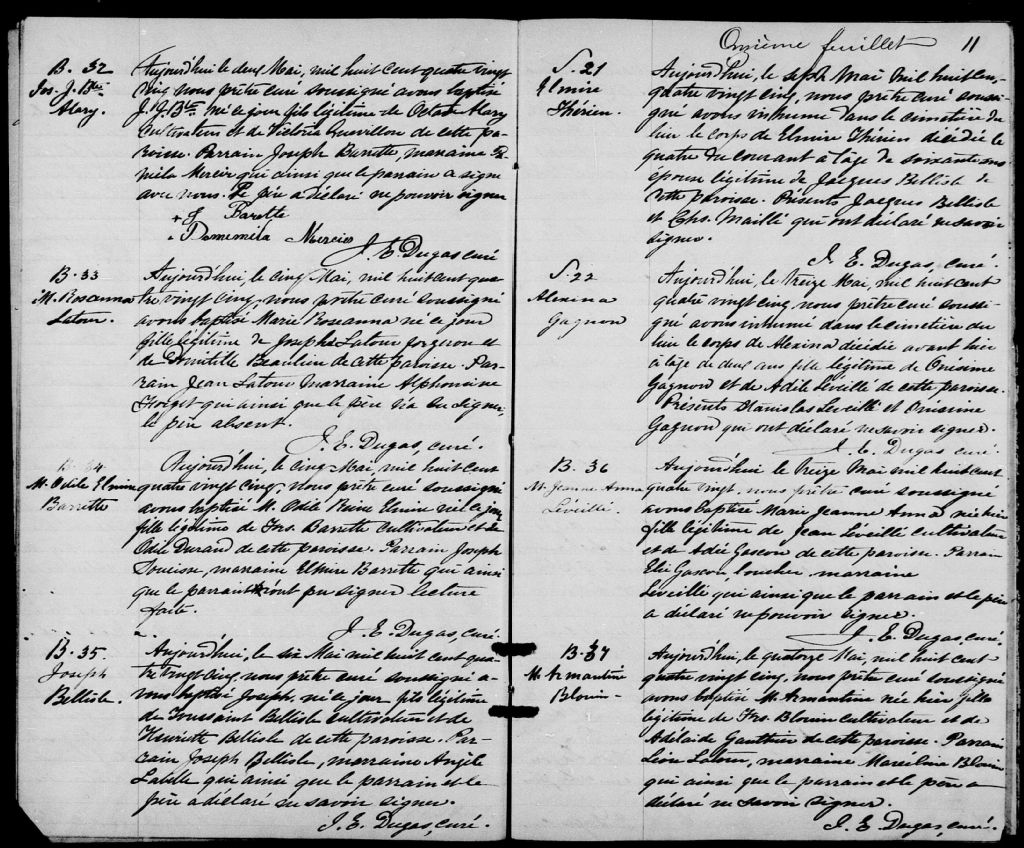 B. 32
Jos. J. Bte
Alary.
Aujourd'hui le deux Mai, mil huit cent quatre vingt
cinq nous prêtre curé soussigné avons baptisé
J. J. Bte né ce jour fils légitime de Octave Alary
Cultivateur et de Victoria Ouvillon de cette pa-
roisse. Parrain Joseph Barrette, marraine
Mercier qui ainsi que le parrain a signé
avec nous. Le père a déclaré ne pouvoir signer
+ J Barette
+ Mercier
J. E. Dugas curé
B. 33
M. Rosanna
Latour.
Aujourd'hui, le cinq Mai, mil huit cent qua-
tre vingt cinq, nous prêtre curé soussigné
avons baptisé Marie Roseanna né ce jour
fille légitime de Joseph Latour forgeron et
de Domitille Beaulieu de cette paroisse. Par-
rain Jean Latour Marraine Alphonsine
Forget qui ainsi que le père n'a su signer
le père absent.
J. E. Dugas, curé.
B. 34
M. Odile Elmire
Barrette
Aujourd'hui, le cinq Mai, mil huit cent
quatre vingt cinq, nous prêtre curé soussigné
avons baptisé M. Odile Reine Elmire née ce jour
fille légitime de Frs. Barrette cultivateur et de
Odile Durand de cette paroisse. Parrain Joseph
marraine Elmire Barrette qui ainsi
que le parrain n'ont pu signer lecture
faite.
J. E. Dugas, curé.
B. 35
Joseph
Bellisle.
Aujourd'hui, le six Mai mil huit cent qua-
tre vingt cinq, nous prêtre curé soussigné a-
vons baptisé Joseph, né ce jour fils légitime
de Toussaint Bellisle cultivateur et de
Henriette Bellisle de cette paroisse. Par-
rain Joseph Bellisle, marraine Angèle
Labelle qui ainsi que le parrain et le
père a déclaré ne savoir signer.
J. E. Dugas, curé.
Onsième feuillet 11
S. 21
Elmire
Thérien.
Aujourd'hui, le sept Mai mil huit cent
quatre vingt cinq, nous prêtre curé soussi-
gné avons inhumé dans le cimetière du
lieu le corps de Elmire Thérien décédée le
quatre du courant à l'âge de soixante ans
épouse légitime de Jacques Bellisle de
cette paroisse. Présents Jacques Bellisle
et Chs. Maillé qui ont déclaré ne savoir
signer.
J. E. Dugas, curé.
S. 22
Alexina
Gagnon
Aujourd'hui, le treize Mai, mil huit cent
quatre vingt cinq, nous prêtre curé soussi-
gné avons inhumé dans le cimetière du
lieu le corps de Alexina décédée avant hier
à l'âge de deux ans fille légitime de Onésime
Gagnon et de Adèle Leveillé de cette paroisse.
Présents Stanislas Leveillé et Onésime
Gagnon qui ont déclaré ne savoir signer.
J. E. Dugas curé.
B. 36
M. Jeanne Anna
Léveillé.
Aujourd'hui le treize Mai mil huit cent
quatre vingt, nous prêtre curé soussigné
avons baptisé Marie Jeanne Anna née hier
fille légitime de Jean Leveillé cultivateur
et de Adée Gascon de cette paroisse. Parrain
Elie Gascon boucher, marraine
Léveillé qui ainsi que le parrain et le père
a déclaré ne pouvoir signer.
J. E. Dugas, curé.
B. 37
M. Armantine
Blouin
Aujourd'hui, le quatorze Mai, mil huit cent
quatre vingt cinq, nous prêtre curé soussigné
avons baptisé M. Armantine née hier fille
légitime de Frs. Blouin cultivateur et de
Adélaide Gauthier de cette paroisse. Parrain
Léon Latour, marraine Blouin
qui ainsi que le parrain et le père a
déclaré ne savoir signer.
J. E. Dugas, curé.